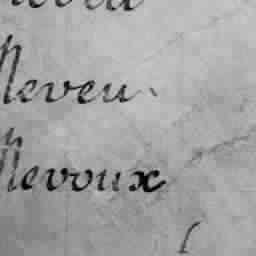 Neveu
Nevoux